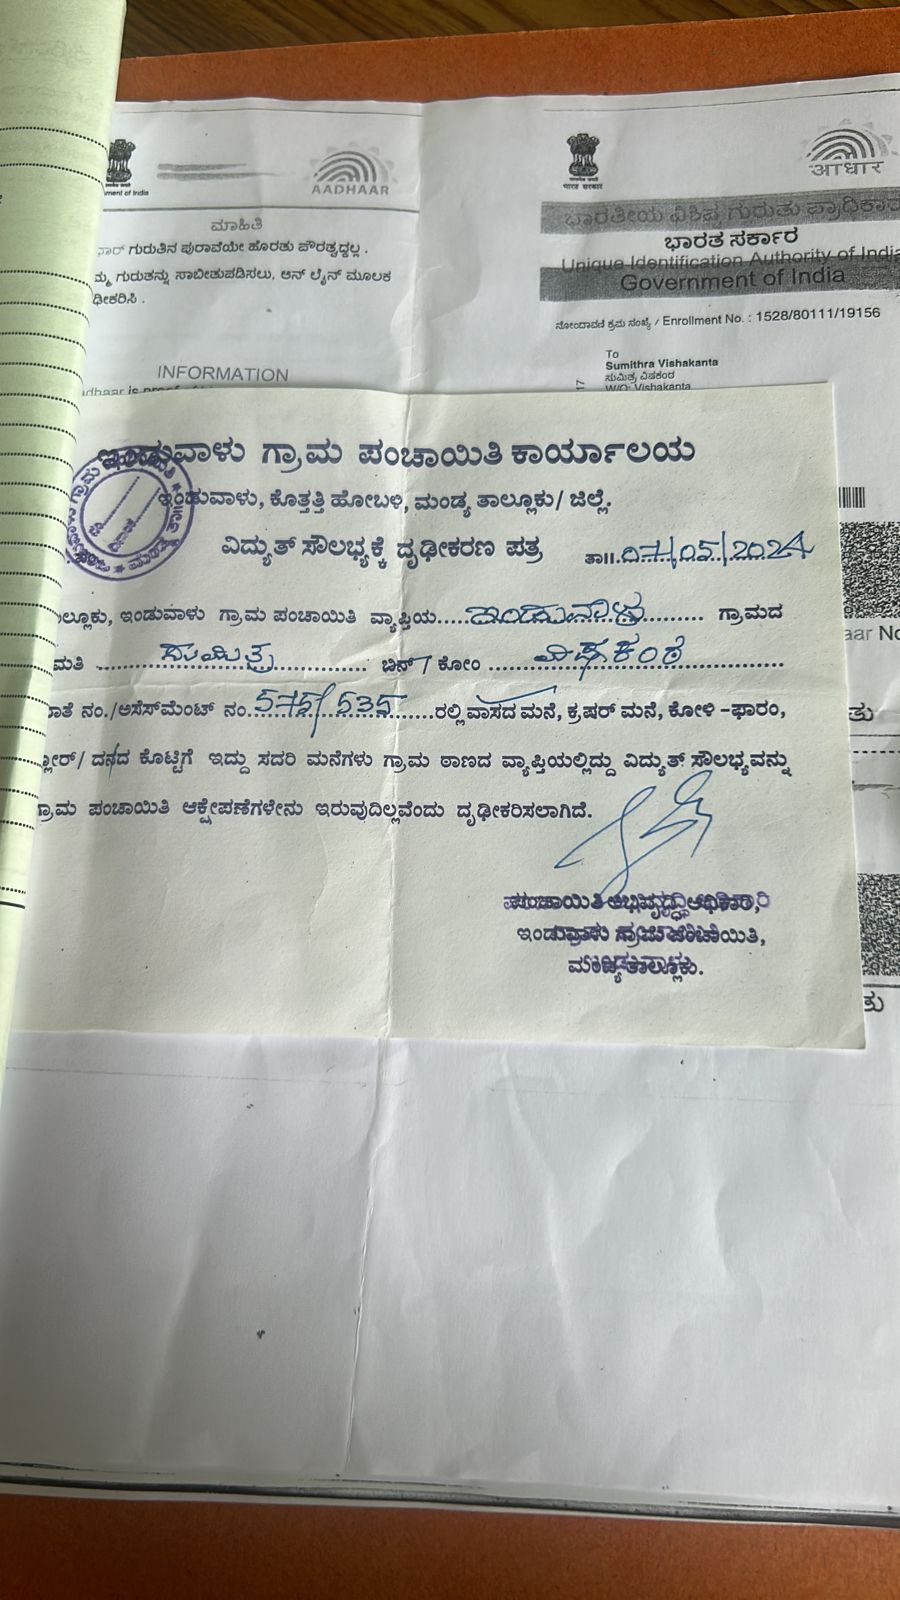 ment of India
AADHAAR
ಮಾಹಿತಿ
ಗುರುತಿನ ಪುರಾವೆಯೇ ಹೊರತು ಪೌರತ್ವದ್ದಲ್ಲ .
ಗುರುತನ್ನು ಸಾಬೀತುಪಡಿಸಲು, ಆನ್ ಲೈನ್ ಮೂಲಕ
INFORMATION
भारत सरकार
आधार
ಭಾರತೀಯ ವಿಶಿಷ್ಟ ಗುರುತು ಪ್ರಾಧಿಕಾರ
ಭಾರತ ಸರ್ಕಾರ
Unique Identification Authority of India
Government of India
ನೋಂದಾವಣೆ ಕ್ರಮ ಸಂಖ್ಯೆ / Enrollment No. : 1528/80111/19156
To
Sumithra Vishakanta
ಸುಮಿತ್ರ ವಿಷಕಂಠ
W/O: Vishakanta
17
ಇಂಡುವಾಳು ಗ್ರಾಮ ಪಂಚಾಯಿತಿ ಕಾರ್ಯಾಲಯ
ಇಂಡುವಾಳು, ಕೊತ್ತತ್ತಿ ಹೋಬಳಿ, ಮಂಡ್ಯ ತಾಲ್ಲೂಕು/ ಜಿಲ್ಲೆ.
ವಿದ್ಯುತ್ ಸೌಲಭ್ಯಕ್ಕೆ ದೃಢೀಕರಣ ಪತ್ರ ತಾ॥.07/05/2024
ಲ್ಲೂಕು, ಇಂಡುವಾಳು ಗ್ರಾಮ ಪಂಚಾಯಿತಿ ವ್ಯಾಪ್ತಿಯ.....ಇಂಡುವಾಳು.......... ಗ್ರಾಮದ
ಮತಿ ..........ಸುಮಿತ್ರ............... ಬಿನ್ / ಕೋಂ .......ವಿಷಕಂಠ................
ಾತೆ ನಂ./ಅಸೆಸ್‌ಮೆಂಟ್ ನಂ.575/535.......ರಲ್ಲಿ ವಾಸದ ಮನೆ, ಕ್ರಷರ್ ಮನೆ, ಕೋಳಿ -ಫಾರಂ,
ದನದ ಕೊಟ್ಟಿಗೆ ಇದ್ದು ಸದರಿ ಮನೆಗಳು ಗ್ರಾಮ ಠಾಣದ ವ್ಯಾಪ್ತಿಯಲ್ಲಿದ್ದು ವಿದ್ಯುತ್ ಸೌಲಭ್ಯವನ್ನು
ಗ್ರಾಮ ಪಂಚಾಯಿತಿ ಆಕ್ಷೇಪಣೆಗಳೇನು ಇರುವುದಿಲ್ಲವೆಂದು ದೃಢೀಕರಿಸಲಾಗಿದೆ.
ಪಂಚಾಯಿತಿ ಅಭಿವೃದ್ಧಿ ಅಧಿಕಾರಿ,
ಇಂಡುವಾಳು ಗ್ರಾಮ ಪಂಚಾಯಿತಿ,
ಮಂಡ್ಯ ತಾಲ್ಲೂಕು.